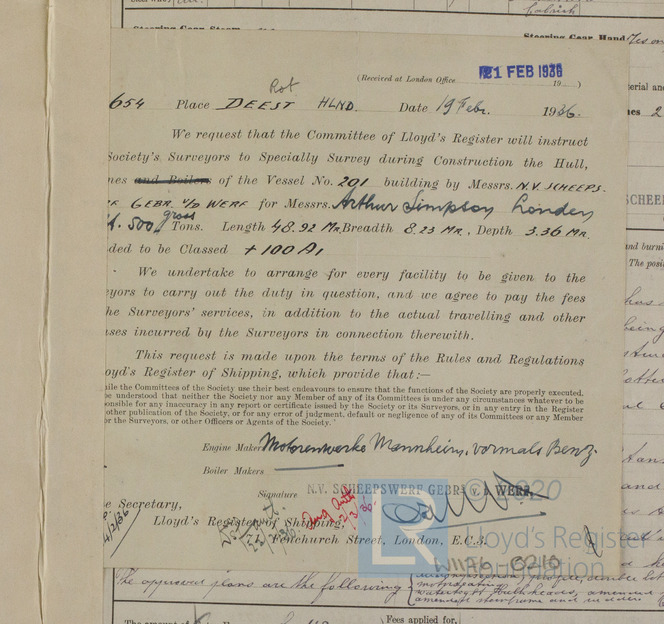 Gabriek
Steering Gear, Hand Yes on
(Received at London Office
21 FEB 1936
19 )
Rot
654 Place DEEST HLND. Date 19 Febr. 1936.
We request that the Committee of Lloyd's Register will instruct
Society's Surveyors to Specially Survey during Construction the Hull,
nes and Boilers of the Vessel No. 291 building by Messrs. N.V. SCHEEPS.
GEBR. V/D WERF for Messrs. Arthur Simpson London
gross
500 Tons. Length 48.92 Mr. Breadth 8.23 MR. Depth 3.36 MR.
ded to be Classed + 100 A1
We undertake to arrange for every facility to be given to the
eyors to carry out the duty in question, and we agree to pay the fees
he Surveyors' services, in addition to the actual travelling and other
ses incurred by the Surveyors in connection therewith.
This request is made upon the terms of the Rules and Regulations
oyd's Register of Shipping, which provide that :—
ile the Committees of the Society use their best endeavours to ensure that the functions of the Society are properly executed,
be understood that neither the Society nor any Member of any of its Committees is under any circumstances whatever to be
onsible for any inaccuracy in any report or certificate issued by the Society or its Surveyors, or in any entry in the Register
other publication of the Society, or for any error of judgment, default or negligence of any of its Committees or any Member
r the Surveyors, or other Officers or Agents of the Society."
Engine Makers Motorenwerke Mannheim, vormals Benz.
Boiler Makers
Signature N.V. SCHEEPSWERF GEBR. v. d. WERF.
© 2020
e Secretary,
Lloyd's Register of Shipping,
Fenchurch Street, London, E.C.3.
Lloyd's Register
Foundation
W1176 0210
The approved plans are the following
Fees applied for,